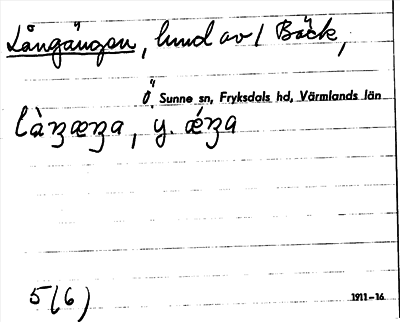 Långängen, lund av / Bäck,
Ö Sunne sn, Fryksdals hd, Värmlands län
là̀ŋæŋa, y. ǽŋa
5(6)
1911-16